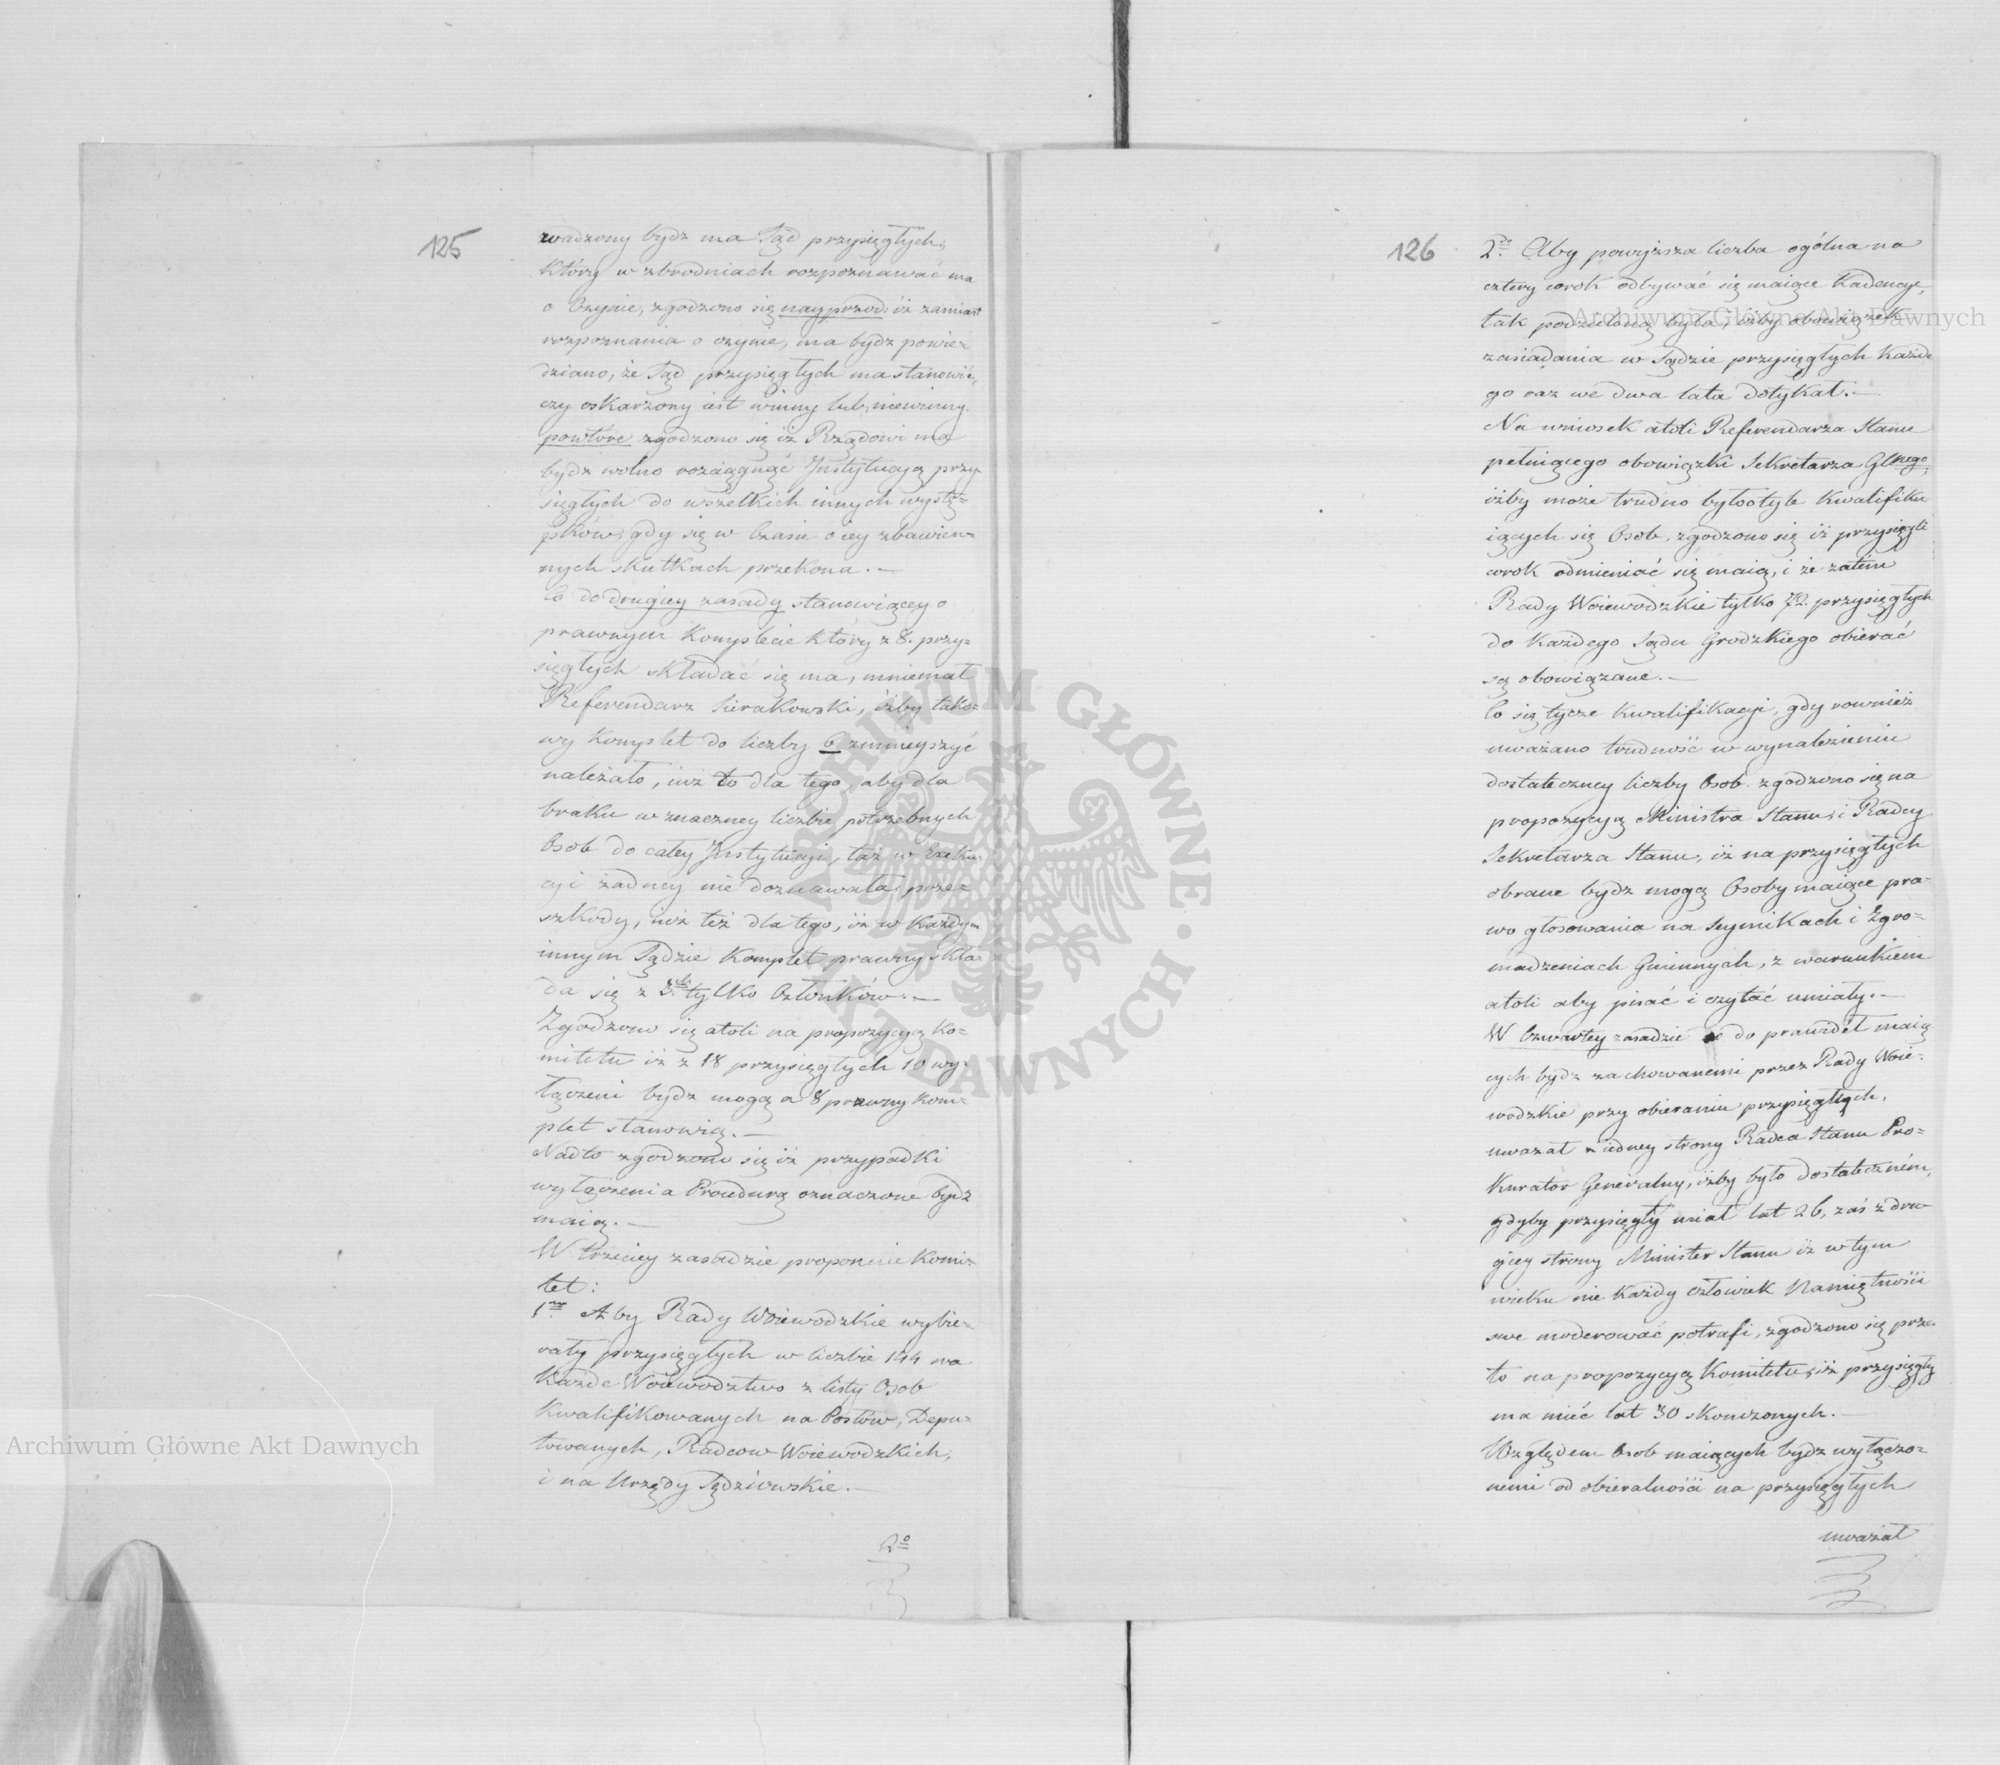 125
wadzony bydz ma Sąd przysięgłych,
który w zbrodniach rozpoznawać ma
o Czynie, zgodzono się nayprzod: iż zamiast
rozpoznania o czynie, ma bydz powie-
dziano, że Sąd przysięgłych ma stanowić,
czy oskarzony iest winny lub niewinny.
powtóre zgodzono się iż Rządowi ma
bydz wolno rozciągnąć Instytucyą przy-
sięgłych do wszelkich innych wystę-
pków, gdy się w Czasie o iey zbawien-
nych skutkach przekona.—
Co do drugiey zasady stanowiącey o
prawnym Komplecie który z 8. przy-
sięgłych składać się ma, mniemał
Referendarz Sierakowski, iżby tako-
wy Komplet do liczby 6 zmnieyszyć
należało, iuż to dla tego, aby dla
braku w znaczney liczbie potrzebnych
Osob do całey Instytucyi, taż w Exeku-
cyi żadney nie doznawała prze-
szkody, iuż też dla tego, iż w każdym
innym Sądzie Komplet prawny skła-
da się z 3ch tylko Członków.—
Zgodzono się atoli na propozycyą Ko-
mitetu iż z 18 przysięgłych 10 wy-
łączeni bydz mogą a 8 prawny Kom-
plet stanowią.—
Nadto zgodzono się iż przypadki
wyłączenia Procedurą oznaczone bydz
maią.—
W trzeciey zasadzie proponuie Komi-
tet:
1mo Aby Rady Woiewodzkie wybie-
rały przysięgłych w liczbie 144 na
Każde Woiewodztwo z listy Osob
Kwalifikowanych na Posłów, Depu-
towanych, Radcow Woiewodzkich,
i na Urzędy Sędziowskie.—
2o
126
2do Aby powyższa liczba ogólna na
cztery corok odbywać się maiące Kadencye,
tak podzieloną była, iżby obowiązek
zasiadania w Sądzie przysięgłych Każde
go raz we dwa lata dotykał.—
Na wniosek atoli Referendarza Stanu
pełniącego obowiązki Sekretarza Glnego,
iżby może trudno było o tyle Kwalifiku
iących się Osob, zgodzono się iż przysięgli
corok odmieniać się maią, i że zatem
Rady Woiewodzkie tylko 72. przysięgłych
do Każdego Sądu Grodzkiego obierać
są obowiązane.—
Co się tycze Kwalifikacyi, gdy rownież
uważano trudność w wynalezieniu
dostateczney liczby Osob. zgodzono się na
propozycyą Ministra Stanu, i Radcy
Sekretarza Stanu, iż na przysięgłych
obrane bydz mogą Osoby maiące pra-
wo głosowania na Seymikach i Zgro-
madzeniach Gminnych, z warunkiem
atoli aby pisać i czytać umiały.—
W Czwartey zasadzie co do prawideł maią
cych bydz zachowanemi przez Rady Woie-
wodzkie przy obieraniu przysięgłych,
uważał z iedney strony Radca Stanu Pro-
Kurator Generalny, iżby było dostateczném,
gdyby przysięgły miał lat 26, zaś z dru-
giey strony Minister Stanu iż w tym
wieku nie Każdy Człowiek Namiętności
swe moderować potrafi, zgodzono się prze-
to na propozycyą Komitetu, iż przysięgły
ma mieć lat 30 skończonych.—
Względem Osob maiących bydz wyłączo-
nemi od obieralności na przysięgłych
uważał
Archiwum Główne Akt Dawnych
Archiwum Główne Akt Dawnych
ARCHIWUM GŁÓWNE · AKT DAWNYCH ·